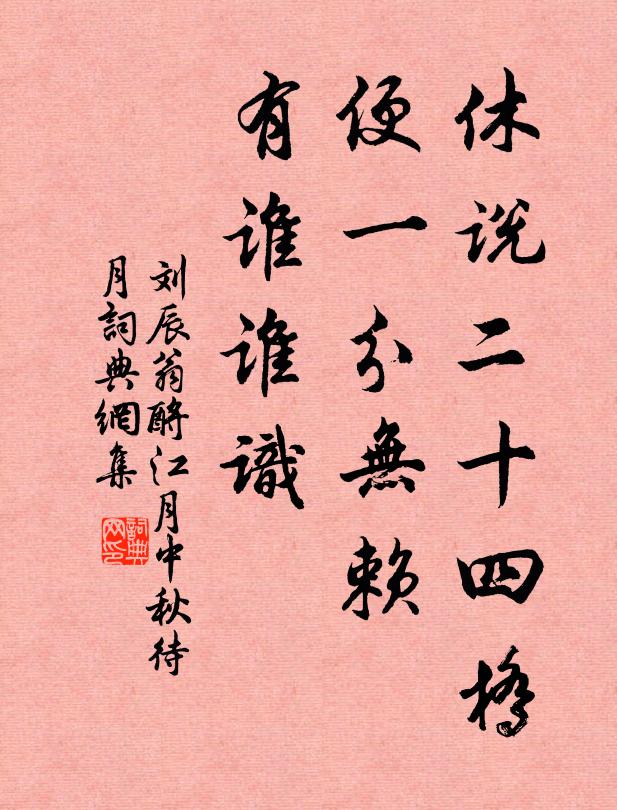 休说二十四橋
便一分無賴
有谁谁識
刘辰翁酹江月中秋待
月詞典網集
詞典网印